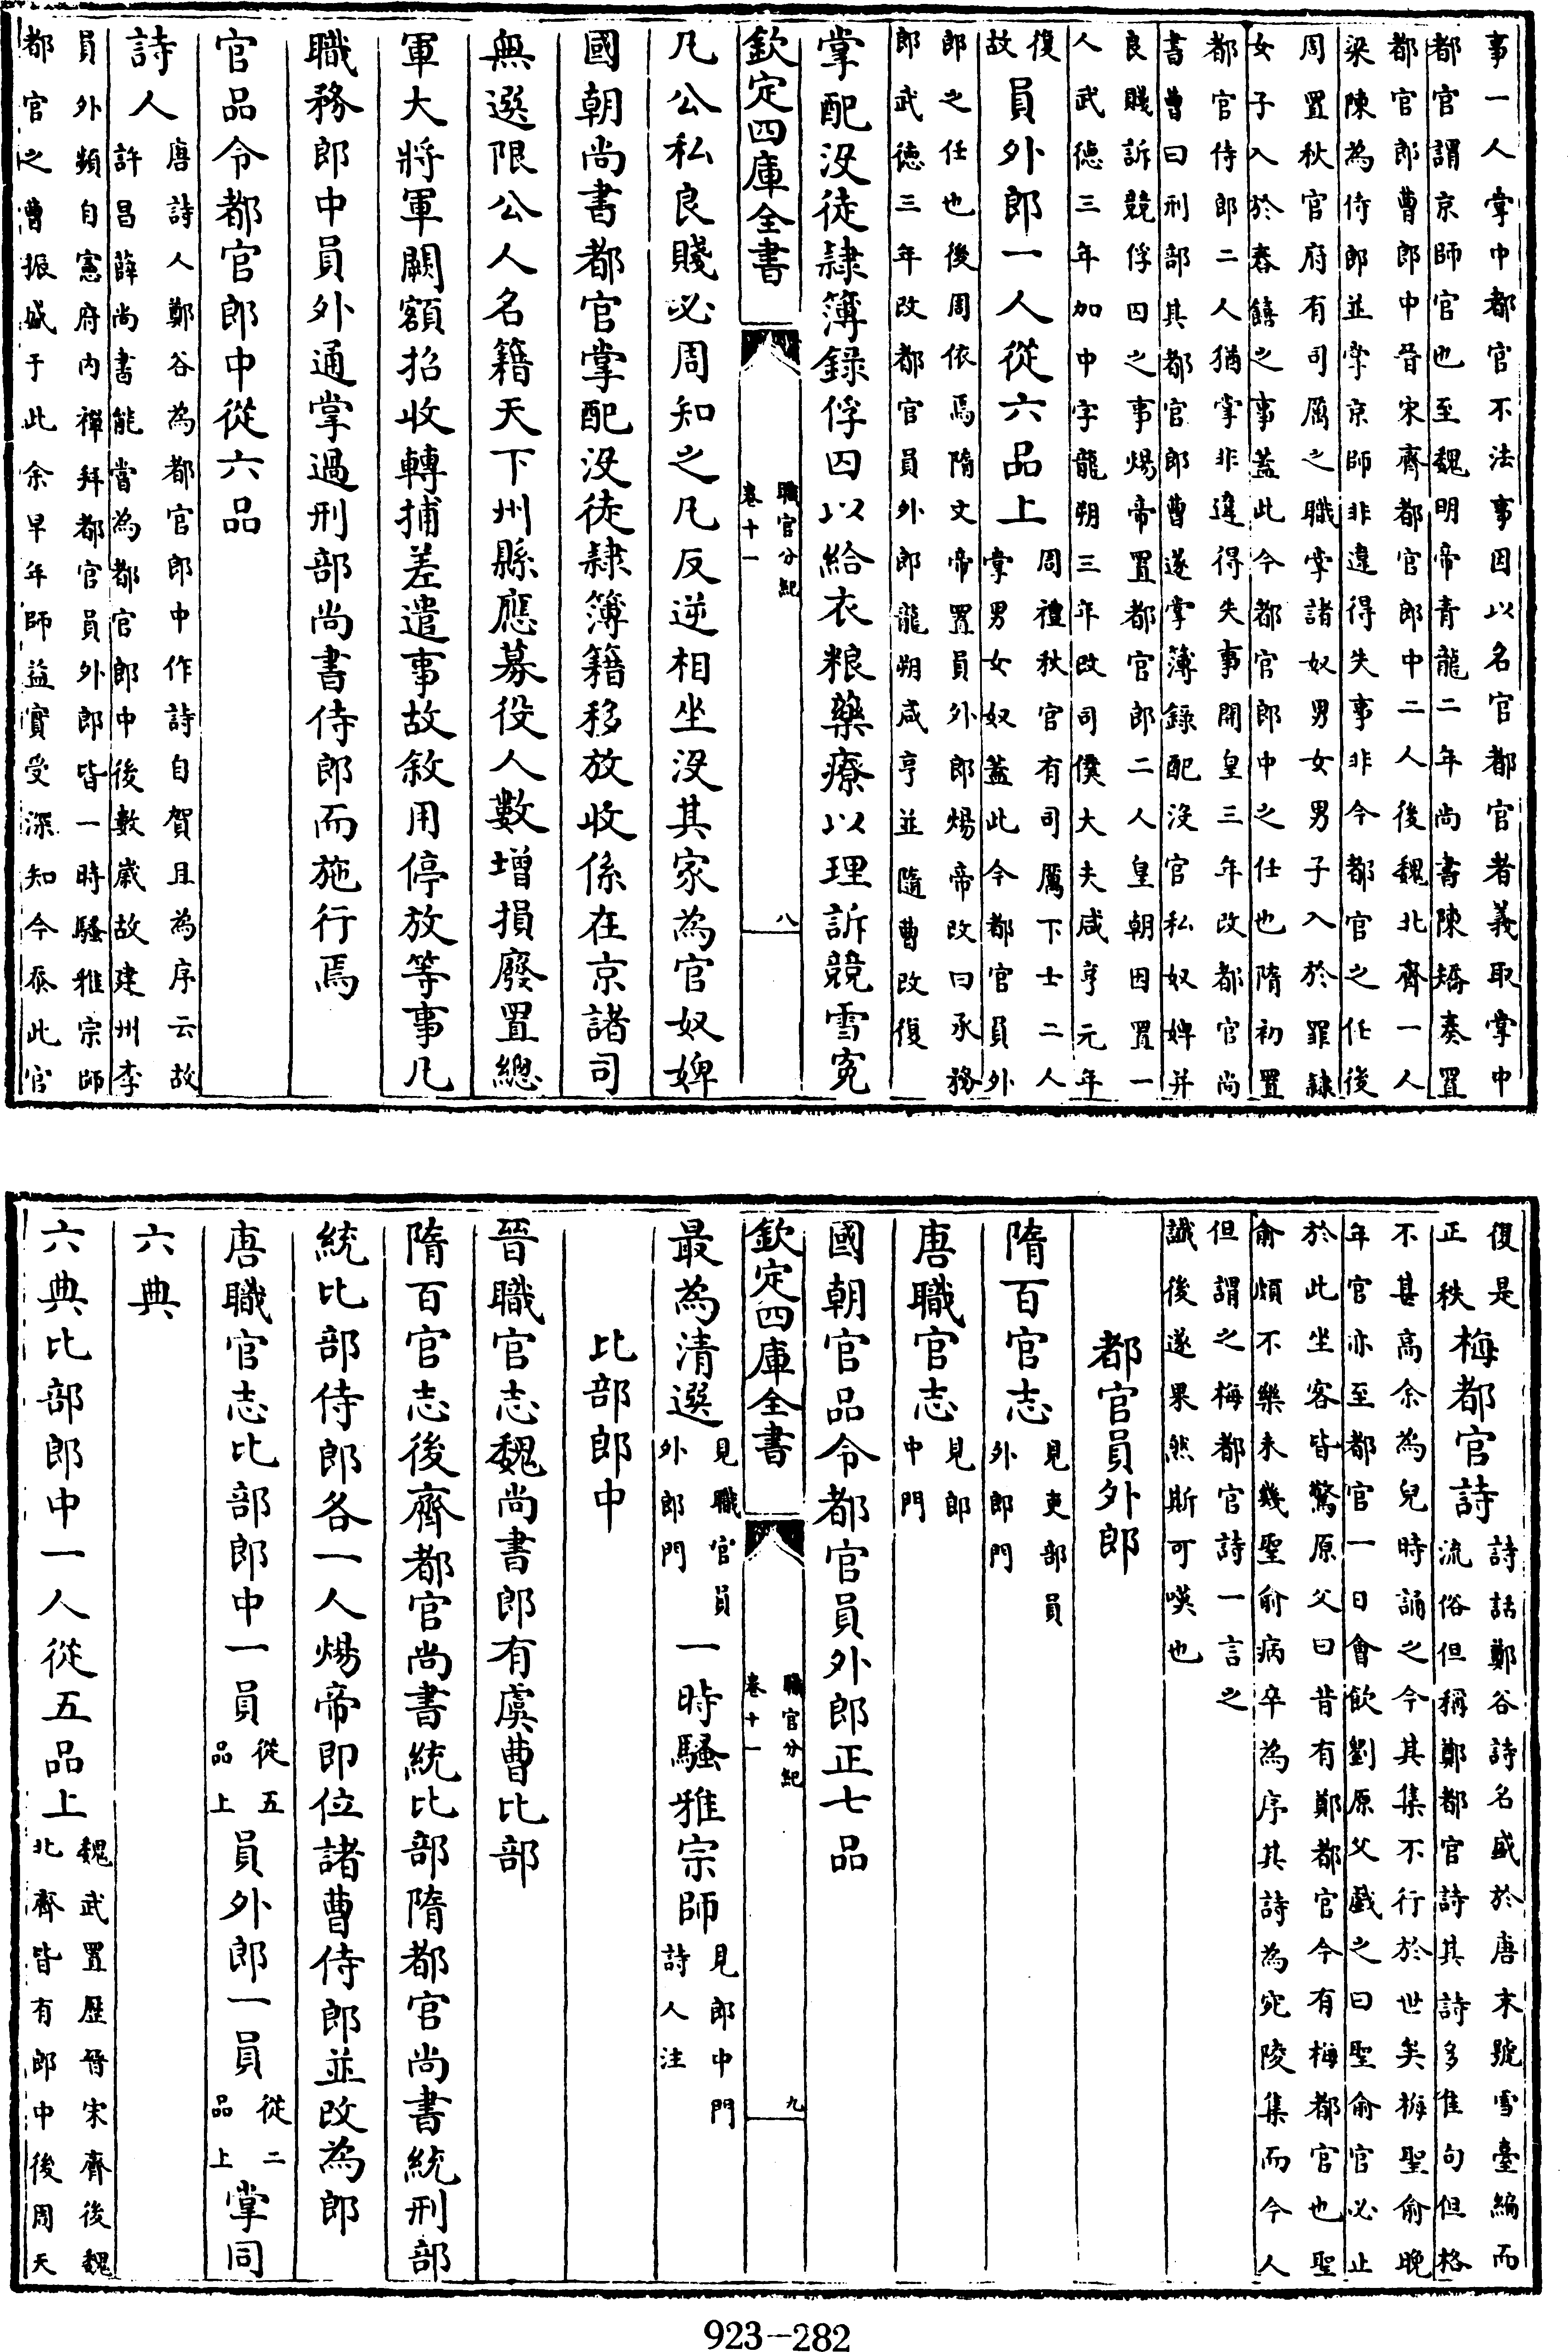 事一人掌中都官不法事因以名官都官者義取掌中
都官謂京師官也至魏明帝青龍二年尚書陳矯奏置
都官郎曹郎中晉宋齊都官郎中二人後魏北齊一人
梁陳為侍郎並掌京師非違得失事非今都官之任後
周置秋官府有司厲之職掌諸奴男女男子入於罪隸
女子入於舂饎之事蓋此今都官郎中之任也隋初置
都官侍郎二人猶掌非違得失事開皇三年改都官尚
書曹曰刑部其都官郎曹遂掌簿錄配沒官私奴婢并
良賤訴競俘囚之事煬帝置都官郎二人皇朝因置一
人武徳三年加中字龍朔三年改司僕大夫咸亨元年
復
故
員外郎一人從六品上
周禮秋官有司厲下士二人
掌男女奴蓋此今都官員外
郎之任也後周依焉隋文帝置員外郎煬帝改曰承務
郎武徳三年改都官員外郎龍朔咸亨並隨曹改復
掌配沒徒隸簿錄俘囚以給衣粮藥療以理訴競雪寃
欽定四庫全書
職官分紀
卷十一
八
凡公私良賤必周知之凡反逆相坐沒其家為官奴婢
國朝尚書都官掌配沒徒隸簿籍移放收係在京諸司
無選限公人名籍天下州縣應募役人數增損廢置總
軍大將軍闕額招收轉捕差遣事故敘用停放等事凡
職務郎中員外通掌過刑部尚書侍郎而施行焉
官品令都官郎中從六品
詩人
唐詩人鄭谷為都官郎中作詩自賀且為序云故
許昌薛尚書能當為都官郎中後數歲故建州李
員外頻自憲府內禪拜都官員外郎皆一時騷雅宗師
都官之曹振盛于此余早年師益實受深知今忝此官
復是
正秩
梅都官詩
詩話鄭谷詩名盛於唐末號雪臺編而
流俗但稱鄭都官詩其詩多佳句但格
不甚高余為兒時誦之今其集不行於世矣梅聖俞晚
年官亦至都官一日會飲劉原父戲之曰聖俞官必止
於此坐客皆驚原父曰昔有鄭都官今有梅都官也聖
俞頗不樂未幾聖俞病卒為序其詩為宛陵集而今人
但謂之梅都官詩一言之
誠後遂果然斯可嘆也
都官員外郎
隋百官志
見吏部員
外郎門
唐職官志
見郎
中門
國朝官品令都官員外郎正七品
欽定四庫全書
職官分紀
卷十一
九
最為清選
見職官員
外郎門
一時騷雅宗師
見郎中門
詩人注
比部郎中
晉職官志魏尚書郎有虞曹比部
隋百官志後齊都官尚書統比部隋都官尚書統刑部
統比部侍郎各一人煬帝即位諸曹侍郎並改為郎
唐職官志比部郎中一員
從五
品上
員外郎一員
從二
品上
掌同
六典
六典比部郎中一人從五品上
魏武置歷晉宋齊後魏
北齊皆有郎中後周天
923-282